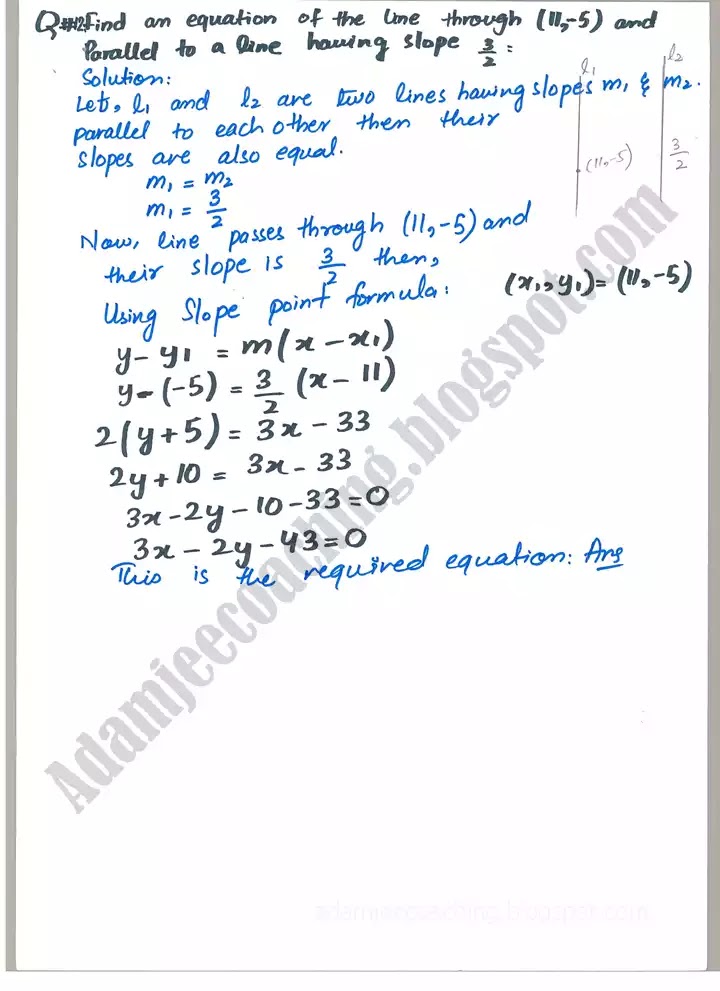 Q#12 Find an equation of the line through (11,-5) and
Parallel to a line having slope 3/2 :
Solution:
Let, l₁ and l₂ are two lines having slopes m₁ & m₂.
parallel to each other then their
slopes are also equal.
m₁ = m₂
m₁ = 3/2
l₁
l₂
(11,-5)
3/2
Now, line passes through (11,-5) and
their slope is 3/2 then,
Using Slope point formula:
(x₁,y₁)=(11,-5)
y-y₁ = m(x-x₁)
y-(-5) = 3/2 (x-11)
2(y+5) = 3x-33
2y+10 = 3x-33
3x-2y-10-33=0
3x-2y-43=0
This is the required equation: Ans
Adamjeecoaching.blogspot.com
adamjeecoaching.blogspot.com